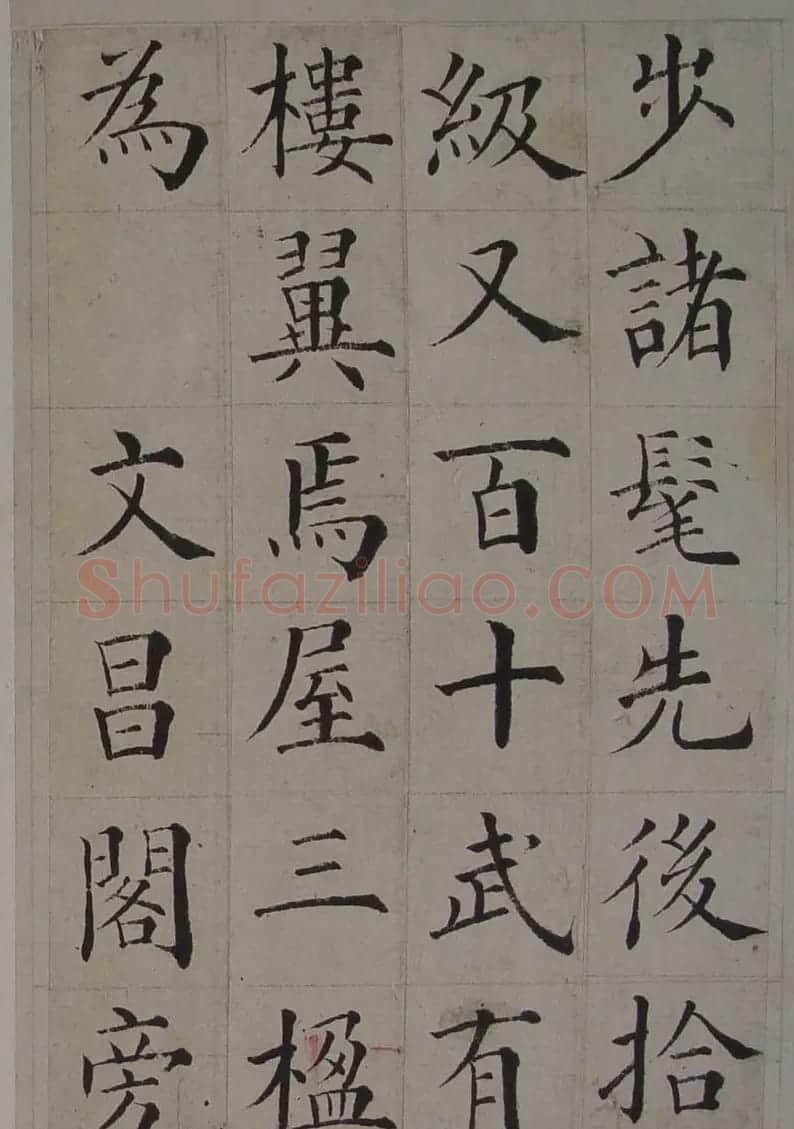 步諸髦先後拾
級又百十武有
樓翼焉屋三楹
為 文昌閣旁
Shufaziliao.COM